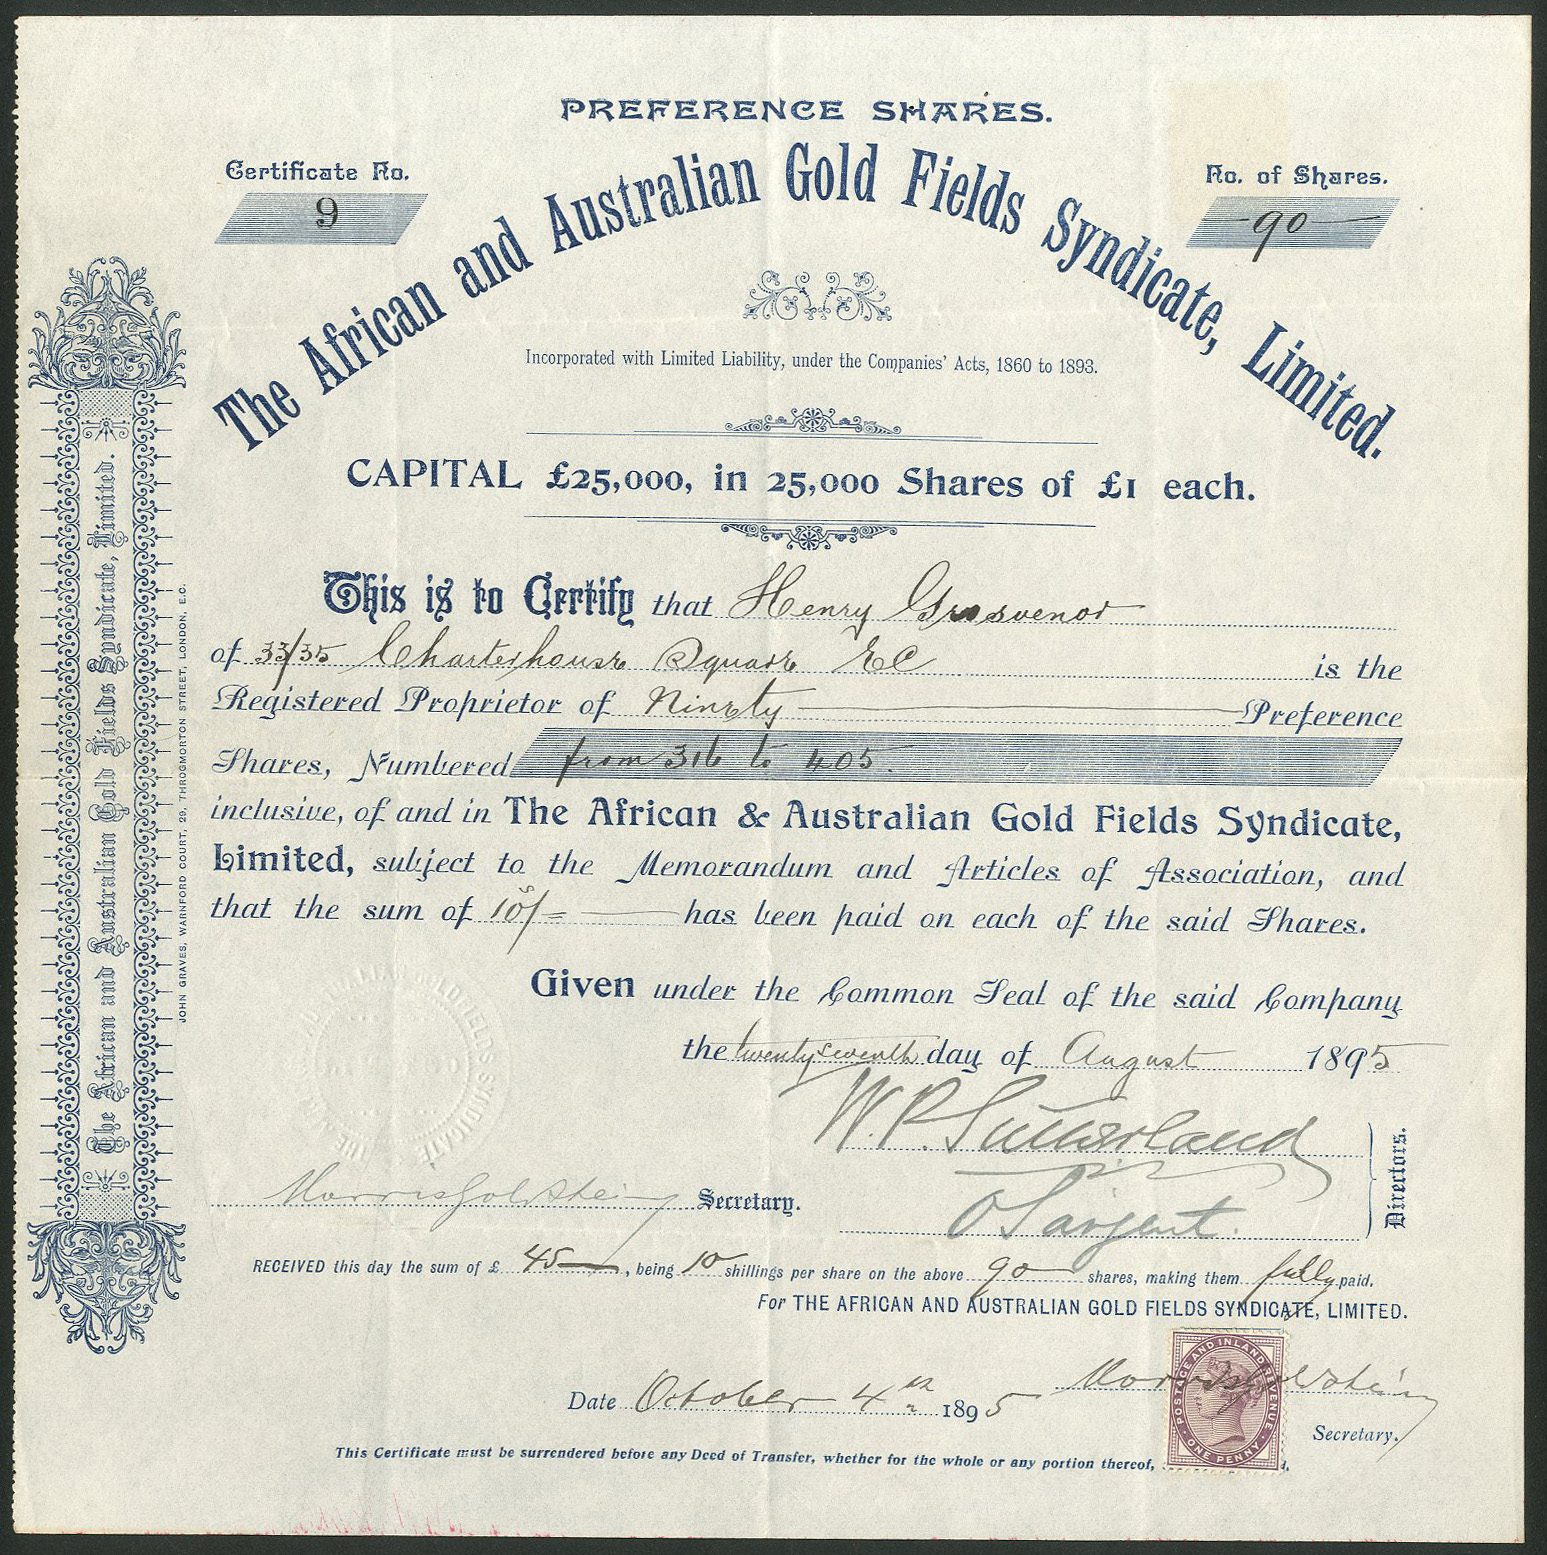 PREFERENCE SHARES.
Certificate No.
9
No. of Shares.
90
The African and Australian Gold Fields Syndicate, Limited.
Incorporated with Limited Liability, under the Companies' Acts, 1860 to 1893.
CAPITAL £25,000, in 25,000 Shares of £1 each.
This is to Certify that Henry Grosvenor
of 33/35 Charterhouse Square EC is the
Registered Proprietor of Ninety Preference
Shares, Numbered from 316 to 405.
inclusive, of and in The African & Australian Gold Fields Syndicate,
Limited, subject to the Memorandum and Articles of Association, and
that the sum of 10s/= has been paid on each of the said Shares.
Given under the Common Seal of the said Company
the twenty seventh day of August 1895
W. P. Sutherland
O Sargent.
Directors.
Morris Goldstein Secretary.
RECEIVED this day the sum of £ 45, being 10 shillings per share on the above 90 shares, making them fully paid.
For THE AFRICAN AND AUSTRALIAN GOLD FIELDS SYNDICATE, LIMITED.
Date October 4th 1895
Morris Goldstein
Secretary.
POSTAGE AND INLAND REVENUE
ONE PENNY
This Certificate must be surrendered before any Deed of Transfer, whether for the whole or any portion thereof,
The African and Australian Gold Fields Syndicate, Limited.
JOHN GRAVES, WARNFORD COURT, 29, THROGMORTON STREET, LONDON, E.C.
AUSTRALIAN GOLDFIELDS SYNDICATE